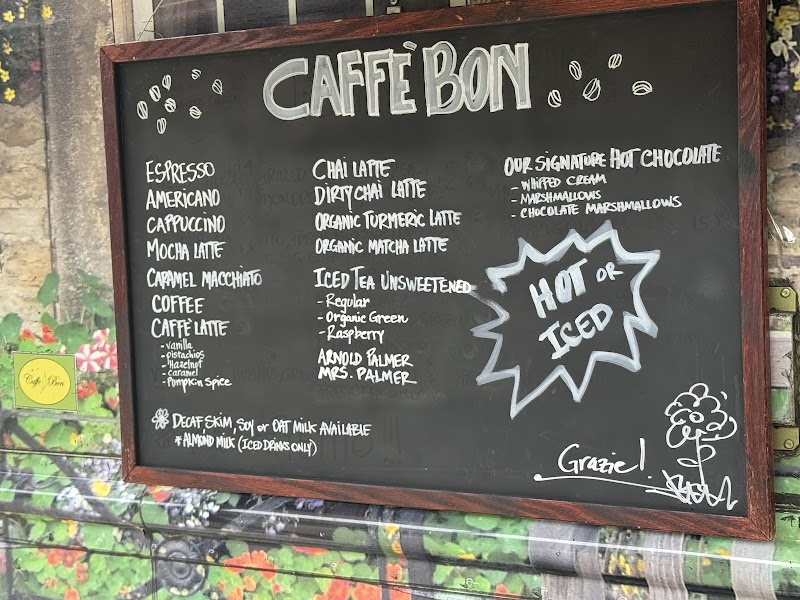 CAFFÈ BON
ESPRESSO
AMERICANO
CAPPUCCINO
MOCHA LATTE
CARAMEL MACCHIATO
COFFEE
CAFFÈ LATTE
- vanilla
- pistachios
- Hazelnut
- caramel
- Pumpkin Spice
DECAF, SKIM, SOY or OAT MILK AVAILABLE
* ALMOND MILK (ICED DRINKS ONLY)
CHAI LATTE
DIRTY CHAI LATTE
ORGANIC TURMERIC LATTE
ORGANIC MATCHA LATTE
ICED TEA UNSWEETENED
- Regular
- Organic Green
- Raspberry
ARNOLD PALMER
MRS. PALMER
OUR SIGNATURE HOT CHOCOLATE
- WHIPPED CREAM
- MARSHMALLOWS
- CHOCOLATE MARSHMALLOWS
HOT OR
ICED
Grazie!
Caffe Bon